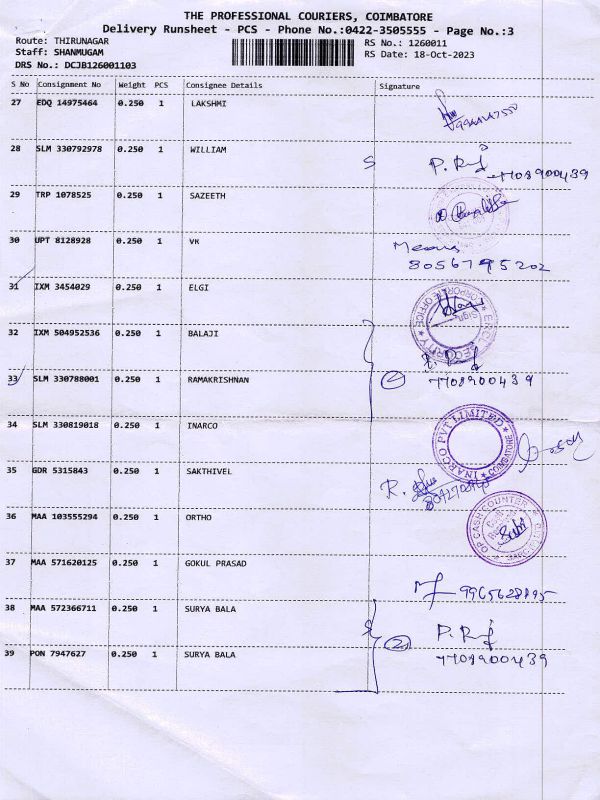 THE PROFESSIONAL COURIERS, COIMBATORE
Delivery Runsheet - PCS - Phone No.:0422-3505555 - Page No.:3
Route: THIRUNAGAR
RS No.: 1260011
Staff: SHANMUGAM
RS Date: 18-Oct-2023
DRS No.: DCJB126001103
S No Consignment No Weight PCS Consignee Details Signature
27 EDQ 14975464 0.250 1 LAKSHMI
28 SLM 330792978 0.250 1 WILLIAM
P. Raj
7708900439
29 TRP 1078525 0.250 1 SAZEETH
30 UPT 8128928 0.250 1 VK
Meena
8056795202
31 IXM 3454029 0.250 1 ELGI
SECURITY
32 IXM 504952536 0.250 1 BALAJI
33 SLM 330788001 0.250 1 RAMAKRISHNAN
2
7708900439
34 SLM 330819018 0.250 1 INARCO
INARCO PVT LIMITED
COIMBATORE
35 GDR 5315843 0.250 1 SAKTHIVEL
R.
36 MAA 103555294 0.250 1 ORTHO
OP CASH COUNTER
37 MAA 571620125 0.250 1 GOKUL PRASAD
38 MAA 572366711 0.250 1 SURYA BALA
2
P. Raj
39 PON 7947627 0.250 1 SURYA BALA
7708900439